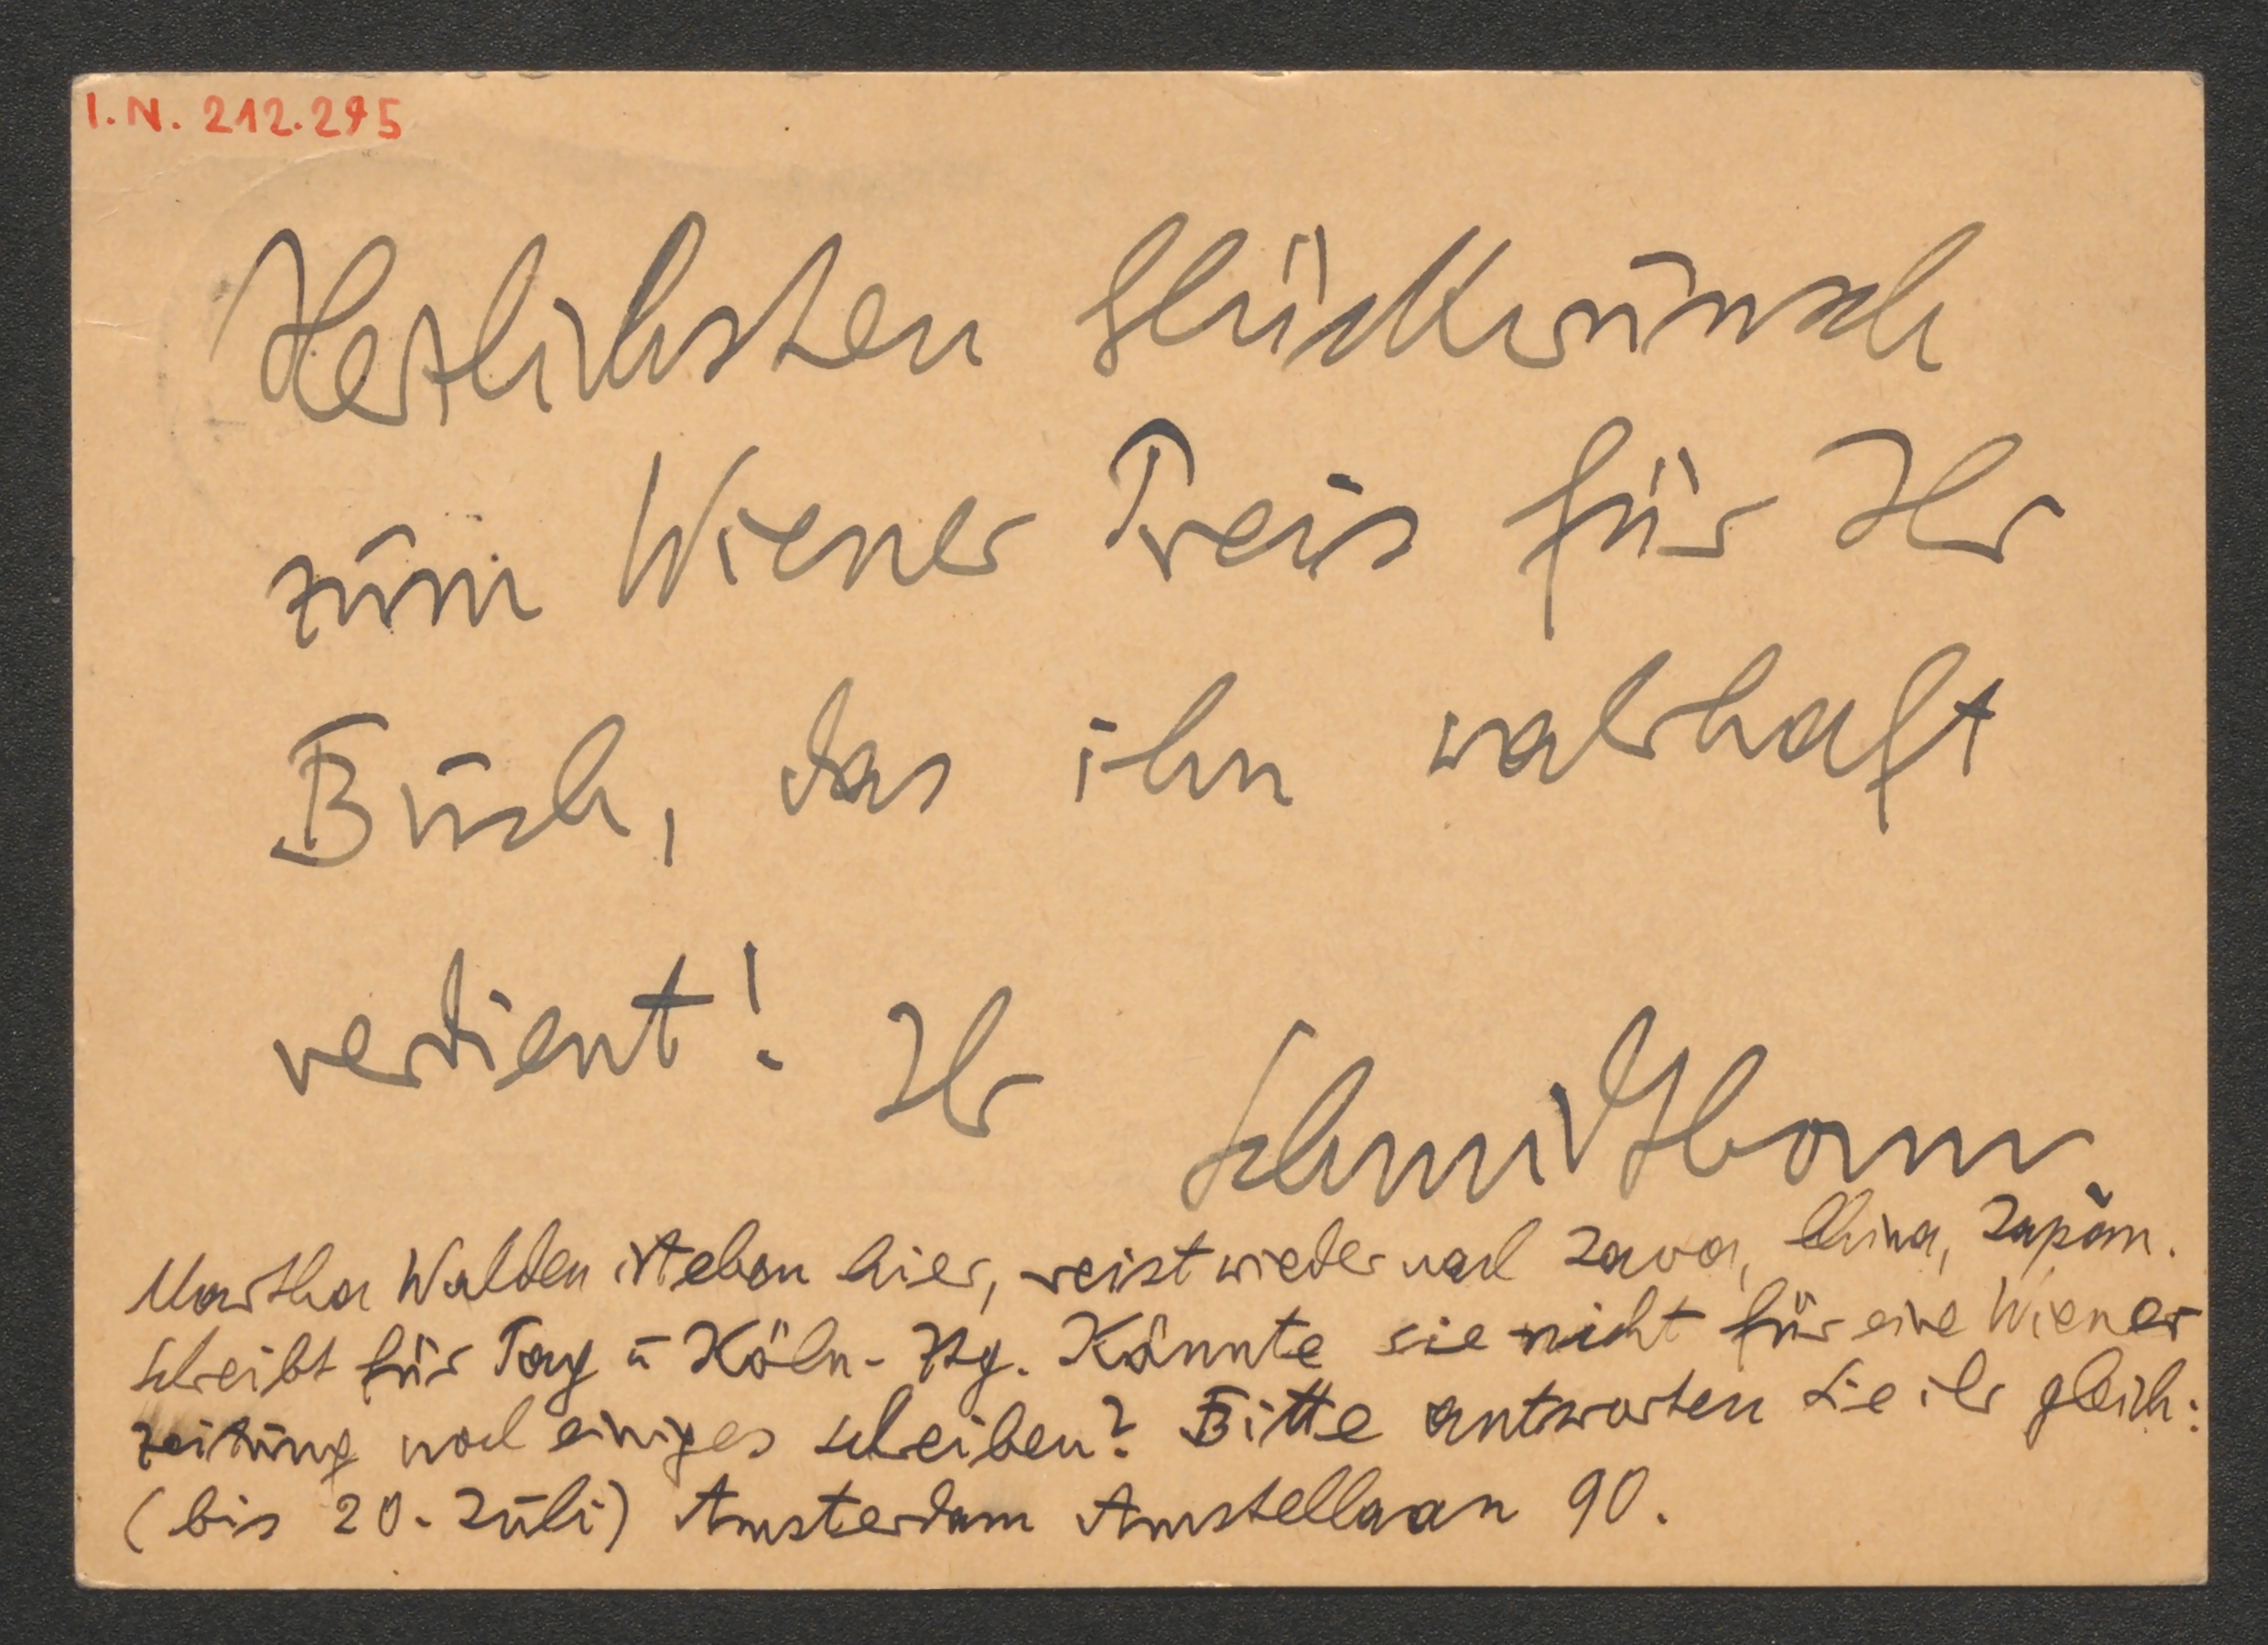 I.N. 212.295
Herzlichsten Glückwunsch
zum Wiener Preis für Ihr
Buch, das ihn wahrhaft
verdient! Ihr Schmidtbonn.
Martha Walden ist eben hier, reist wieder nach Java, China, Japan.
Schreibt für Tag u Köln-Ztg. Könnte sie nicht für eine Wiener
Zeitung noch einiges schreiben? Bitte antworten Sie ihr gleich:
(bis 20. Juli) Amsterdam Amstellaan 90.